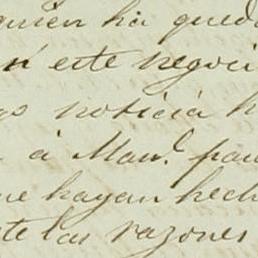 quien ha queda
n este negoci
go noticia h
à Man.l par
ue hayan hech
te las razones